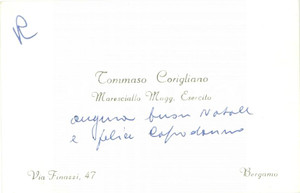 R
Tommaso Corigliano
Maresciallo Magg. Esercito
augura buon Natale
e felice Capodanno
Via Finazzi, 47
Bergamo